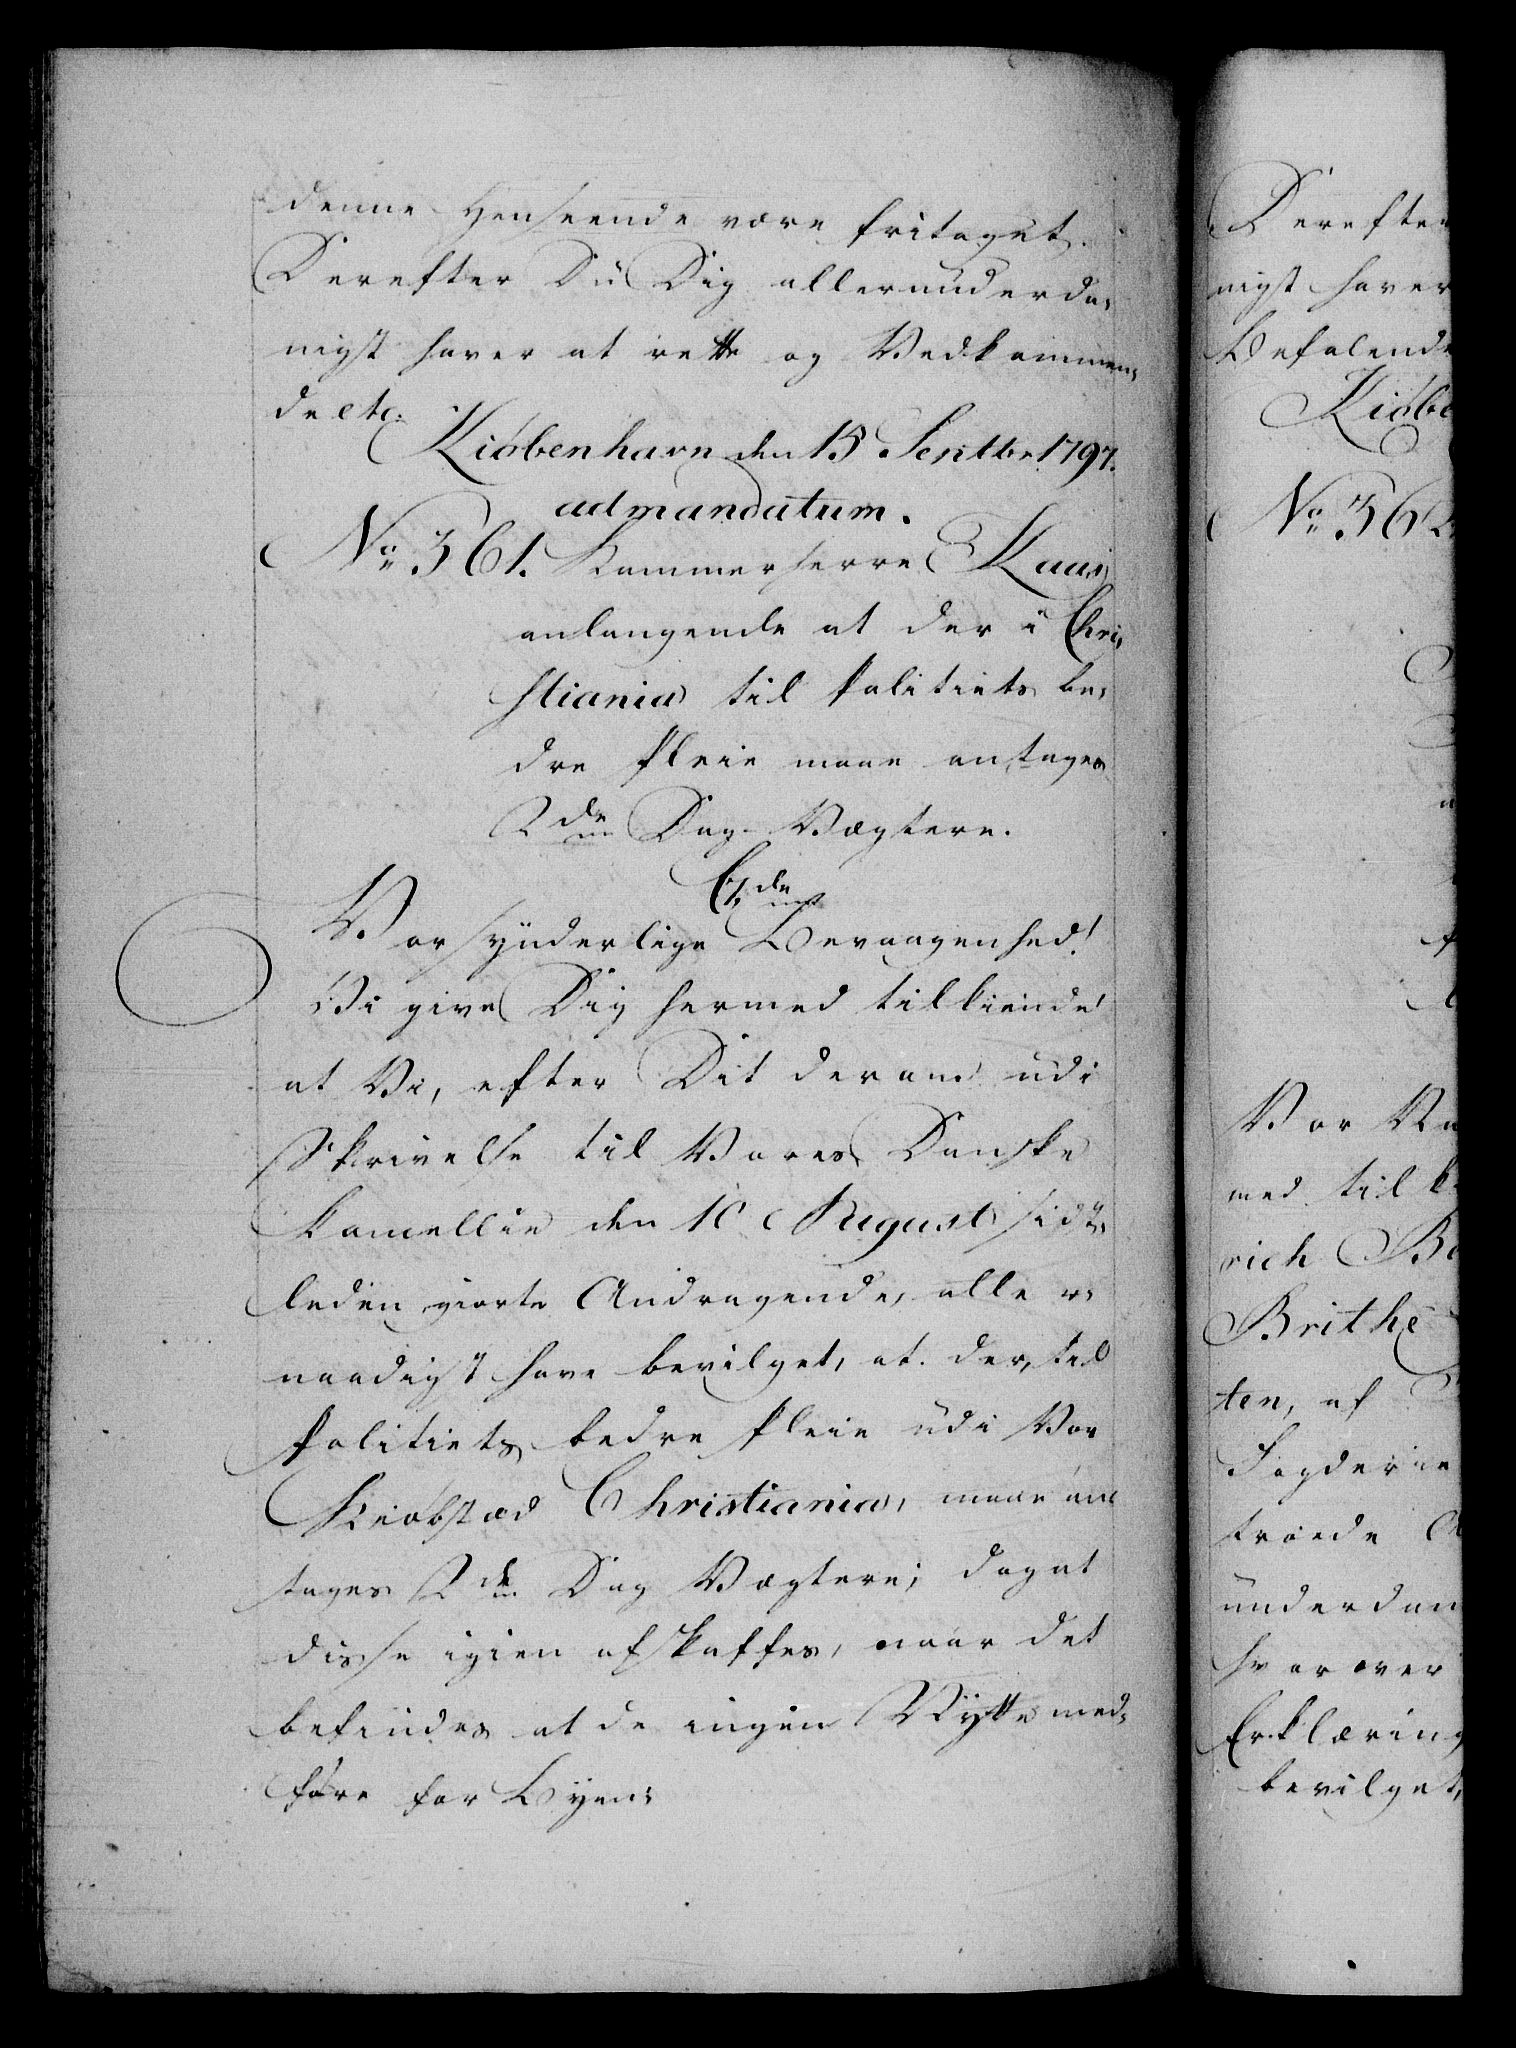 denne Henseende være fritaget.
Derefter Du Dig allerunderda,
nigst haver at rette og Vedkommen,
de etc.
Kiøbenhavn den 15 Septbr 1797.
ad mandatum.
No 361. Kammerherre Kaas
anlangende at der i Chri,
stiania til Politiets be,
dre Pleie maae antages
2de Dag-Vægtere.
C. 7de
Vor synderlige Bevaagenhed!
Vi give Dig hermed tilkiende
at Vi, efter Dit derom udi
Skrivelse til Vores Danske
Cancellie den 10 August sidst,
leden giorte Andragende, aller,
naadigst have bevilget, at der, til
Politiets bedre Pleie udi Vor
Kiøbstæd Christiania, maae an,
tages 2de Dag Vægtere; dog at
disse igien afskaffes, naar det
befindes at de ingen Nytte med,
føre for Byen:
Derefter
nigst haver
Befalende
Kiøbe
No 362
Vor
med til k
rich Be
Brithe
ten, af
Fogderie
trøede
underdan
hvorover
Erklæring
bevilget,